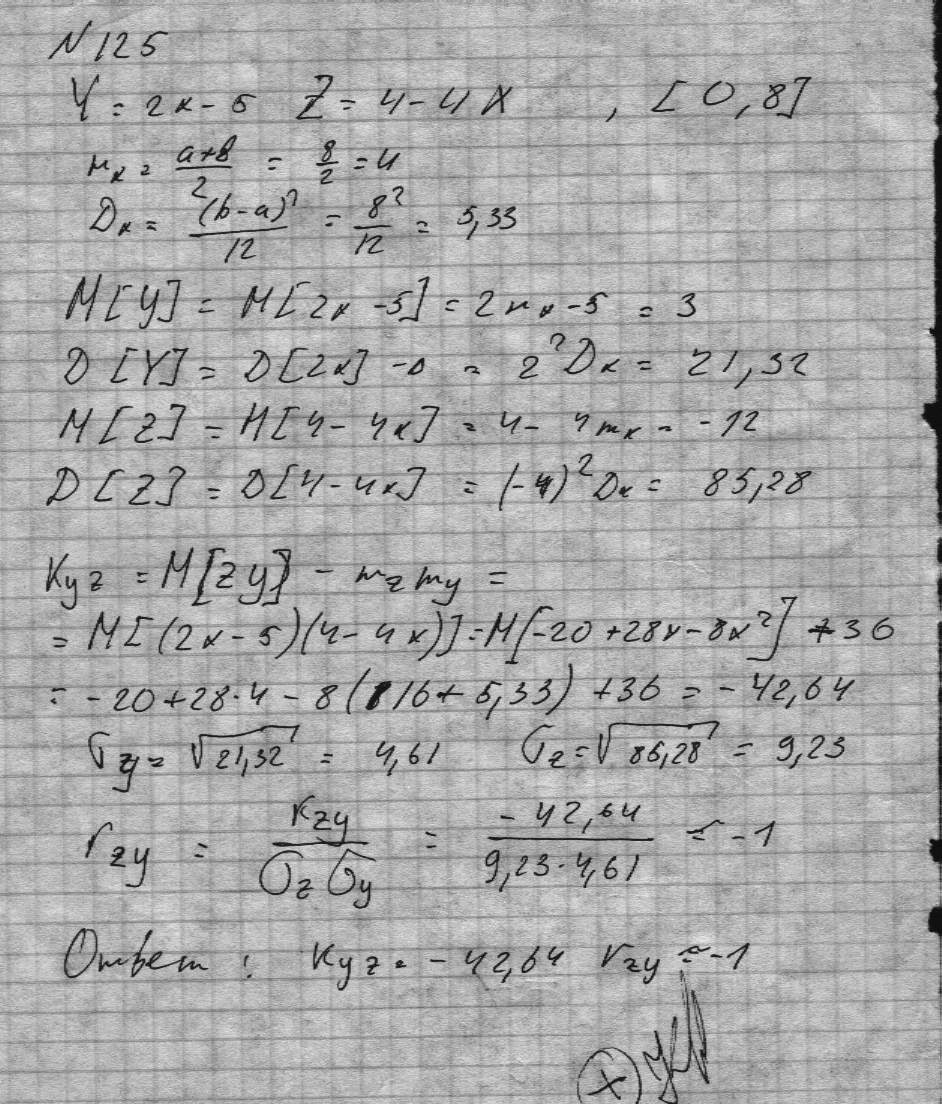 N 125
Y = 2x - 5 Z = 4 - 4X , [0, 8]
m_x = (a+b)/2 = 8/2 = 4
D_x = (b-a)²/12 = 8²/12 = 5,33
M[Y] = M[2x - 5] = 2m_x - 5 = 3
D[Y] = D[2x] - 0 = 2² D_x = 21,32
M[Z] = M[4 - 4x] = 4 - 4m_x = -12
D[Z] = D[4 - 4x] = (-4)² D_x = 85,28
K_yz = M[zy] - m_z m_y =
= M[(2x - 5)(4 - 4x)] = M[-20 + 28x - 8x²] + 36
= -20 + 28·4 - 8(16 + 5,33) + 36 = -42,64
σ_y = √21,32 = 4,61 σ_z = √85,28 = 9,23
r_zy = K_zy/(σ_z σ_y) = -42,64/(9,23·4,61) ≈ -1
Ответ: K_yz = -42,64 r_zy ≈ -1
+